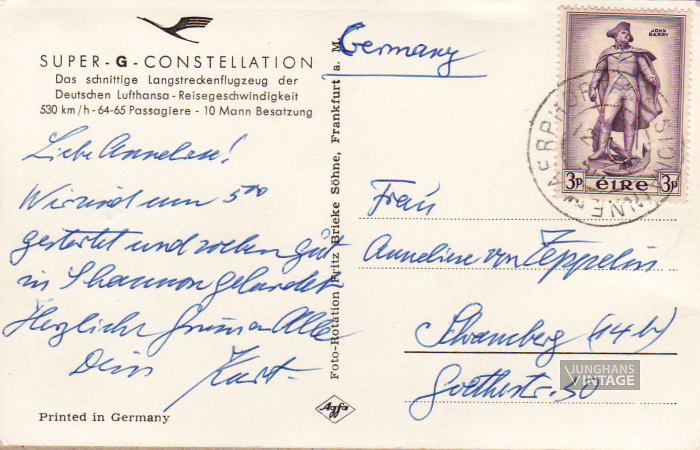 SUPER-G-CONSTELLATION
Das schnittige Langstreckenflugzeug der
Deutschen Lufthansa - Reisegeschwindigkeit
530 km/h - 64-65 Passagiere - 10 Mann Besatzung
Liebe Annelise!
Wir sind um 5⁰⁰
gestartet und soeben gut
in Shannon gelandet
Herzliche Grüsse an Alle
Dein Kurt-
Printed in Germany
Foto-Rotation Fritz Brieke Söhne, Frankfurt a. M.
Agfa
Germany
JOHN
BARRY
3p éIRe 3p
Frau
Annelise von Zeppelin
Schramberg (14b)
Goethestr. 30
JUNGHANS
VINTAGE